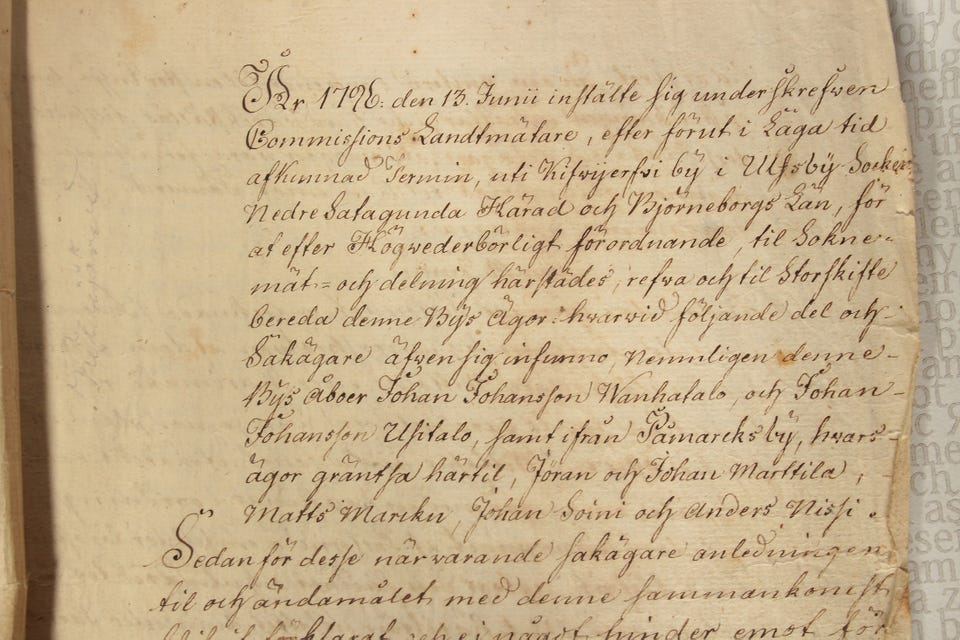 År 1796. den 13. Junii instälte sig underskrefwen
Commissions Landtmätare, efter förut i Laga tid
afkunnad Termin, uti Kifwijerfwi by i Ulfsby Socken
Nedre Satagunda Härad och Björneborgs Län, för
at efter Högwederbörligt förordnande, til Sokne-
mät- och delning härstädes, refwa och til Storskifte
bereda denne Bÿs Ägor: hwarwid följande del och
Sakägare äfwen sig infunno, Nemnligen denne
Bÿs Åboer Johan Johansson Wanhatalo, och Johan
Johansson Usitalo, samt ifrån Påmarcks bÿ, hwars
ägor gräntsa härtil, Jöran och Johan Marttila,
Matts Marcku, Johan Soini och Anders Nissi.
Sedan för desse närwarande sakägare anledningen
til och ändamålet med denne sammankomst
förklarat och ej något hinder emot för